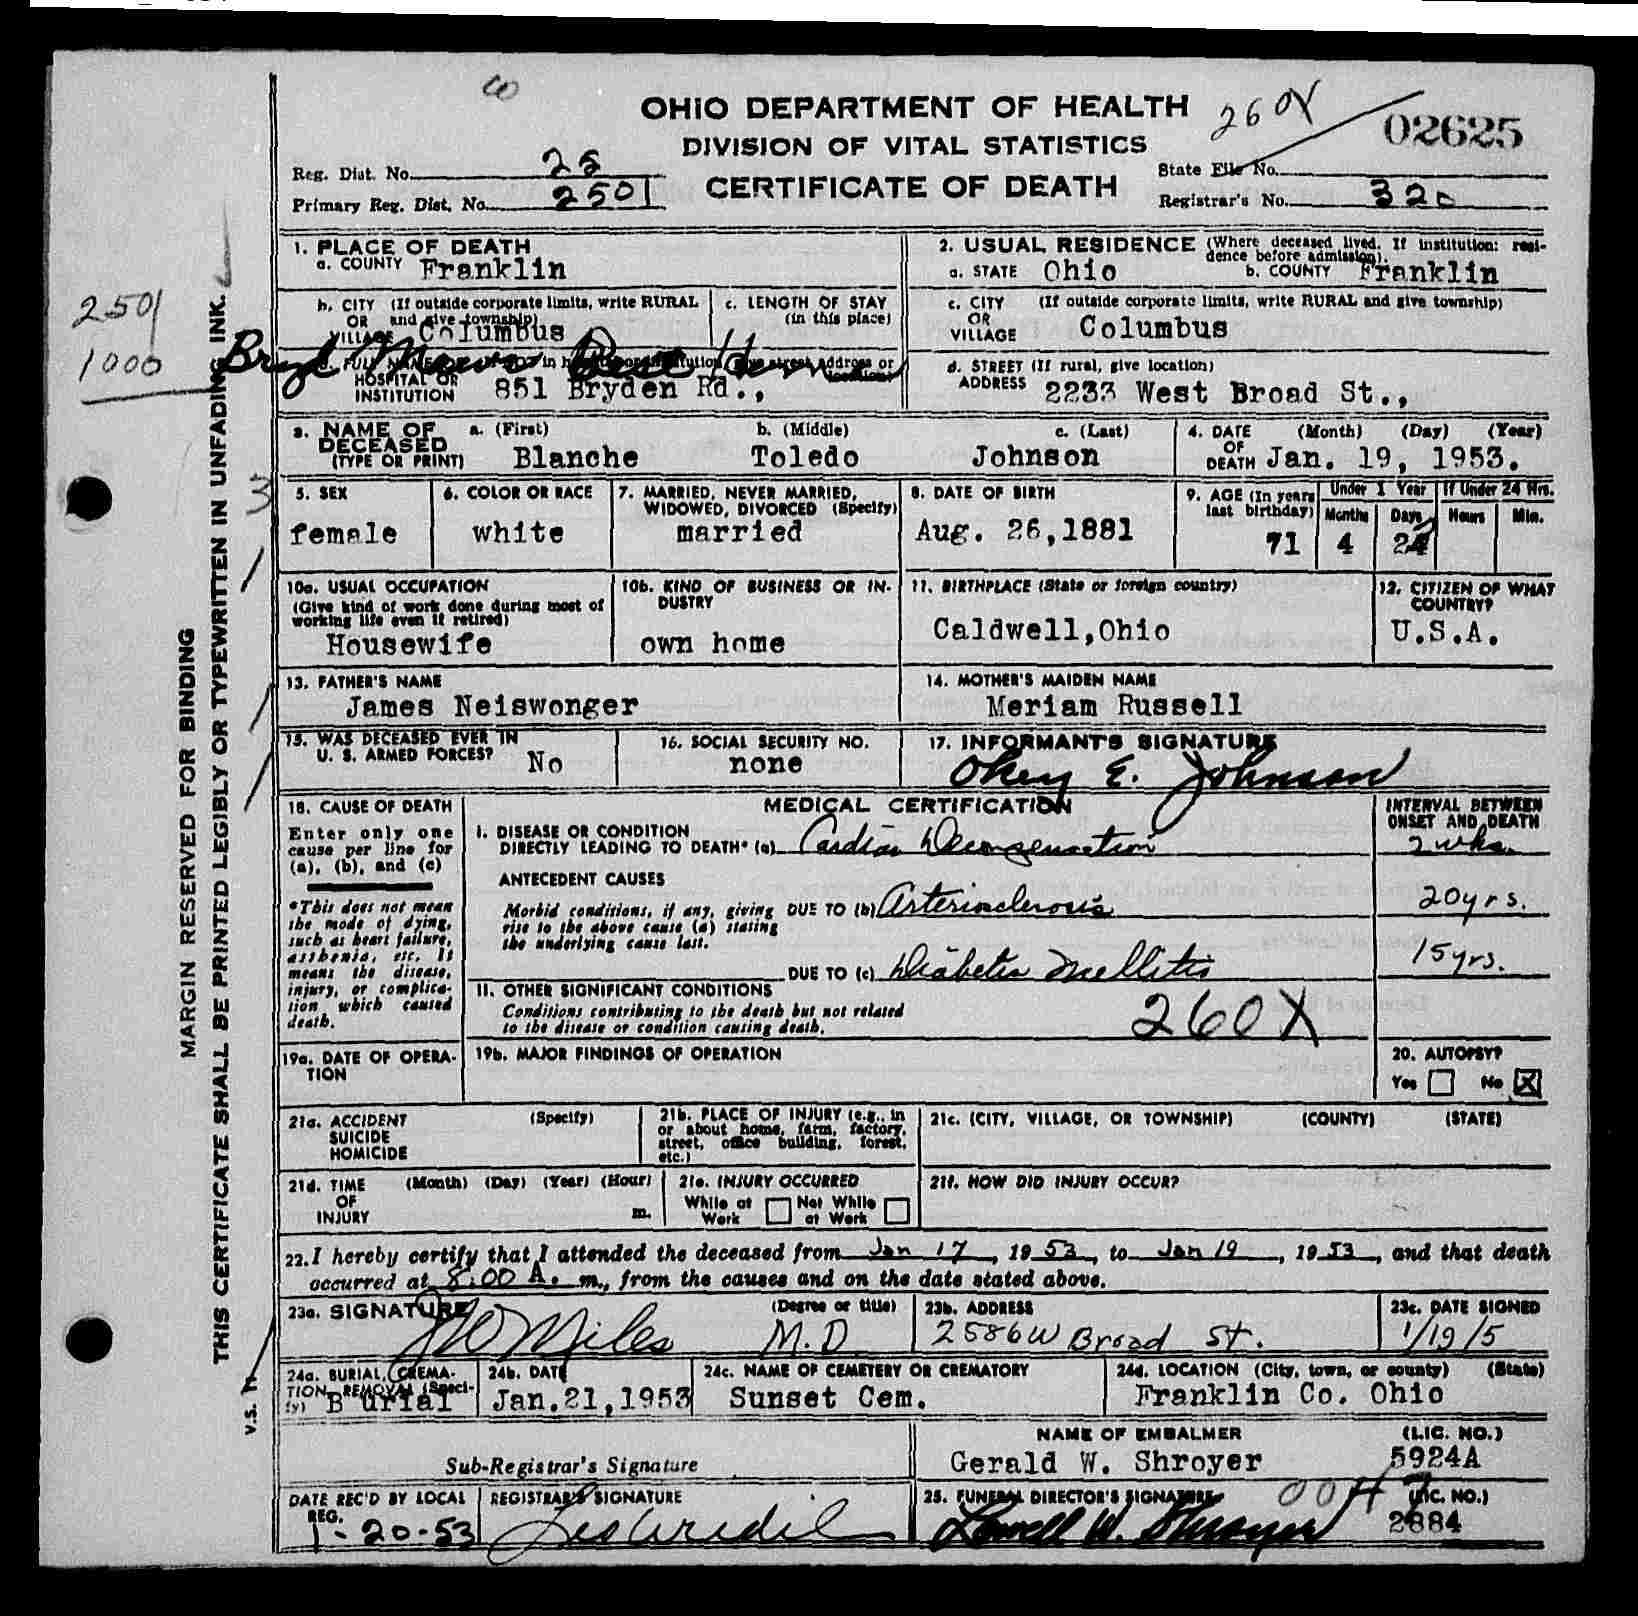 OHIO DEPARTMENT OF HEALTH
DIVISION OF VITAL STATISTICS
CERTIFICATE OF DEATH
260X
02625
Reg. Dist. No. 25
Primary Reg. Dist. No. 2501
State File No.
Registrar's No. 320
2501
1000
MARGIN RESERVED FOR BINDING
THIS CERTIFICATE SHALL BE PRINTED LEGIBLY OR TYPEWRITTEN IN UNFADING INK.
1. PLACE OF DEATH
a. COUNTY Franklin
b. CITY (If outside corporate limits, write RURAL
OR and give township)
VILLAGE Columbus
c. LENGTH OF STAY
(in this place)
HOSPITAL OR
INSTITUTION 851 Bryden Rd.,
2. USUAL RESIDENCE (Where deceased lived. If institution: resi-
dence before admission).
a. STATE Ohio b. COUNTY Franklin
c. CITY (If outside corporate limits, write RURAL and give township)
OR
VILLAGE Columbus
d. STREET (If rural, give location)
ADDRESS 2233 West Broad St.,
3. NAME OF DECEASED (TYPE OR PRINT)
a. (First) Blanche
b. (Middle) Toledo
c. (Last) Johnson
4. DATE OF DEATH (Month) (Day) (Year)
Jan. 19, 1953.
5. SEX
female
6. COLOR OR RACE
white
7. MARRIED, NEVER MARRIED,
WIDOWED, DIVORCED (Specify)
married
8. DATE OF BIRTH
Aug. 26,1881
9. AGE (In years
last birthday)
71
Under 1 Year
Months Days
4
If Under 24 Hrs.
Hours Min.
10a. USUAL OCCUPATION
(Give kind of work done during most of
working life even if retired)
Housewife
10b. KIND OF BUSINESS OR IN-
DUSTRY
own home
11. BIRTHPLACE (State or foreign country)
Caldwell,Ohio
12. CITIZEN OF WHAT
COUNTRY?
U.S.A.
13. FATHER'S NAME
James Neiswonger
14. MOTHER'S MAIDEN NAME
Meriam Russell
15. WAS DECEASED EVER IN
U. S. ARMED FORCES? No
16. SOCIAL SECURITY NO.
none
17. INFORMANT'S SIGNATURE
Okey E. Johnson
18. CAUSE OF DEATH
Enter only one
cause per line for
(a), (b), and (c)
*This does not mean
the mode of dying,
such as heart failure,
asthenia, etc. It
means the disease,
injury, or complica-
tion which caused
death.
MEDICAL CERTIFICATION
INTERVAL BETWEEN
ONSET AND DEATH
I. DISEASE OR CONDITION
DIRECTLY LEADING TO DEATH* (a) Cardiac Decompensation
2 wks.
ANTECEDENT CAUSES
Morbid conditions, if any, giving
rise to the above cause (a) stating
the underlying cause last.
DUE TO (b) Arteriosclerosis
20 yrs.
DUE TO (c) Diabetes Mellitis
15 yrs.
II. OTHER SIGNIFICANT CONDITIONS
Conditions contributing to the death but not related
to the disease or condition causing death.
260X
19a. DATE OF OPERA-
TION
19b. MAJOR FINDINGS OF OPERATION
20. AUTOPSY?
Yes No X
21a. ACCIDENT (Specify)
SUICIDE
HOMICIDE
21b. PLACE OF INJURY (e.g., in
or about home, farm, factory,
street, office building, forest,
etc.)
21c. (CITY, VILLAGE, OR TOWNSHIP) (COUNTY) (STATE)
21d. TIME (Month) (Day) (Year) (Hour)
OF
INJURY m.
21e. INJURY OCCURRED
While at Work Not While at Work
21f. HOW DID INJURY OCCUR?
22. I hereby certify that I attended the deceased from Jan 17, 1953, to Jan 19, 1953, and that death
occurred at 8:00 A. m., from the causes and on the date stated above.
23a. SIGNATURE (Degree or title)
Miles M.D
23b. ADDRESS
2586 W Broad St.
23c. DATE SIGNED
1/19/5
24a. BURIAL, CREMA-
TION, REMOVAL (Speci-
fy) Burial
24b. DATE
Jan.21,1953
24c. NAME OF CEMETERY OR CREMATORY
Sunset Cem.
24d. LOCATION (City, town, or county) (State)
Franklin Co. Ohio
Sub-Registrar's Signature
NAME OF EMBALMER (LIC. NO.)
Gerald W. Shroyer 5924A
DATE REC'D BY LOCAL
REG.
1-20-53
REGISTRAR'S SIGNATURE
25. FUNERAL DIRECTOR'S SIGNATURE (LIC. NO.)
Lowell W. Shroyer 2884